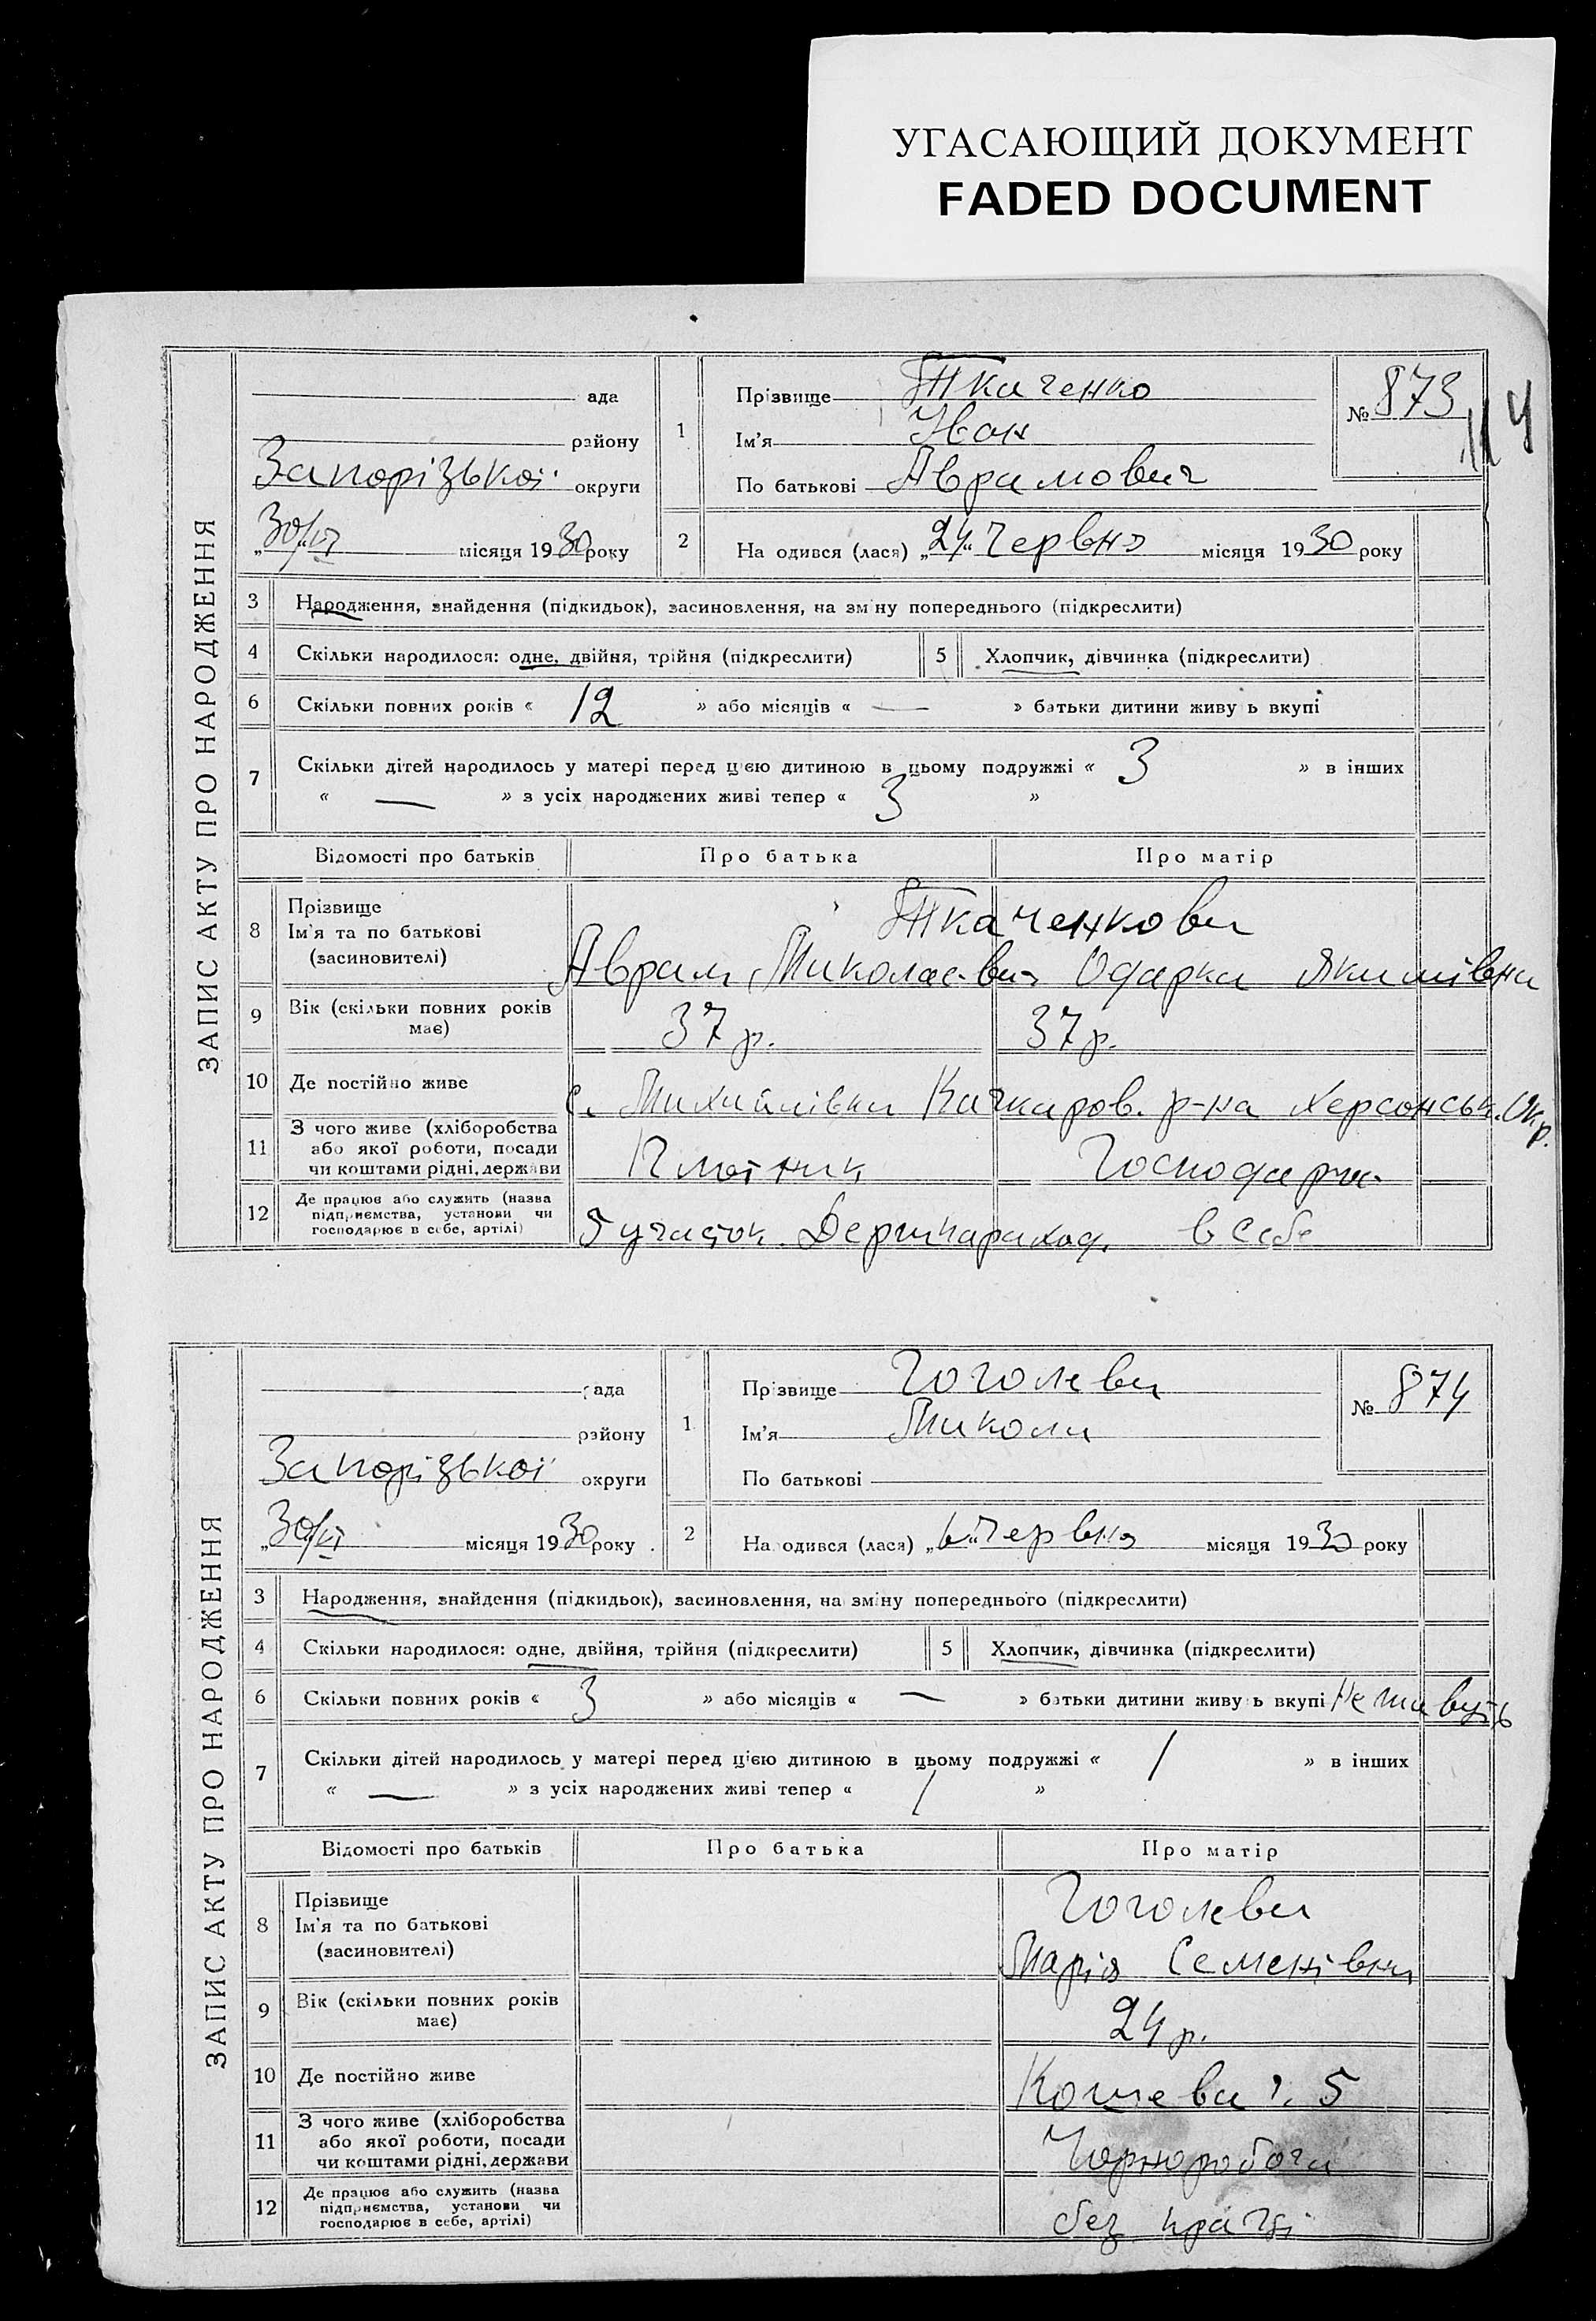 УГАСАЮЩИЙ ДОКУМЕНТ
FADED DOCUMENT
ЗАПИС АКТУ ПРО НАРОДЖЕННЯ
ада
району
Запорізької округи
„30/VI місяця 1930 року
1
Прізвище Ткаченко
Ім'я Іван
По батькові Аврамович
№ 873
114
2
На одився (лася) „24“ Червня місяця 1930 року
3 Народження, знайдення (підкидьок), засиновлення, на зміну попереднього (підкреслити)
4 Скільки народилося: одне, двійня, трійня (підкреслити) 5 Хлопчик, дівчинка (підкреслити)
6 Скільки повних років « 12 » або місяців « — » батьки дитини живу ь вкупі
7 Скільки дітей народилось у матері перед цією дитиною в цьому подружжі « 3 » в інших
« — » з усіх народжених живі тепер « 3 »
Відомості про батьків Про батька Про матір
8 Прізвище
Ім'я та по батькові
(засиновителі)
Ткаченкови
Аврам Миколаєвич Одарка Якимівна
9 Вік (скільки повних років має) 37 р. 37 р.
10 Де постійно живе с. Михайлівка Качкаров. р-на Херсонськ. Окр.
11 З чого живе (хліборобства
або якої роботи, посади
чи коштами рідні, держави
Плотник Господарка
12 Де працює або служить (назва
підприємства, установи чи
господарює в себе, артілі)
5 участок. Держпараход. в себе
ЗАПИС АКТУ ПРО НАРОДЖЕННЯ
рада
району
Запорізької округи
„30/VI місяця 1930 року
1
Прізвище Гоголева
Ім'я Микола
По батькові
№ 874
2
На одився (лася) Червня місяця 1930 року
3 Народження, знайдення (підкидьок), засиновлення, на зміну попереднього (підкреслити)
4 Скільки народилося: одне, двійня, трійня (підкреслити) 5 Хлопчик, дівчинка (підкреслити)
6 Скільки повних років « 3 » або місяців « — » батьки дитини живу ь вкупі Не живуть
7 Скільки дітей народилось у матері перед цією дитиною в цьому подружжі « 1 » в інших
« — » з усіх народжених живі тепер « 1 »
Відомості про батьків Про батька Про матір
8 Прізвище
Ім'я та по батькові
(засиновителі)
Гоголева
Марія Семенівна
9 Вік (скільки повних років має) 24 р.
10 Де постійно живе Кошева ч. 5
11 З чого живе (хліборобства
або якої роботи, посади
чи коштами рідні, держави
Чорноробоча
12 Де працює або служить (назва
підприємства, установи чи
господарює в себе, артілі)
без праці